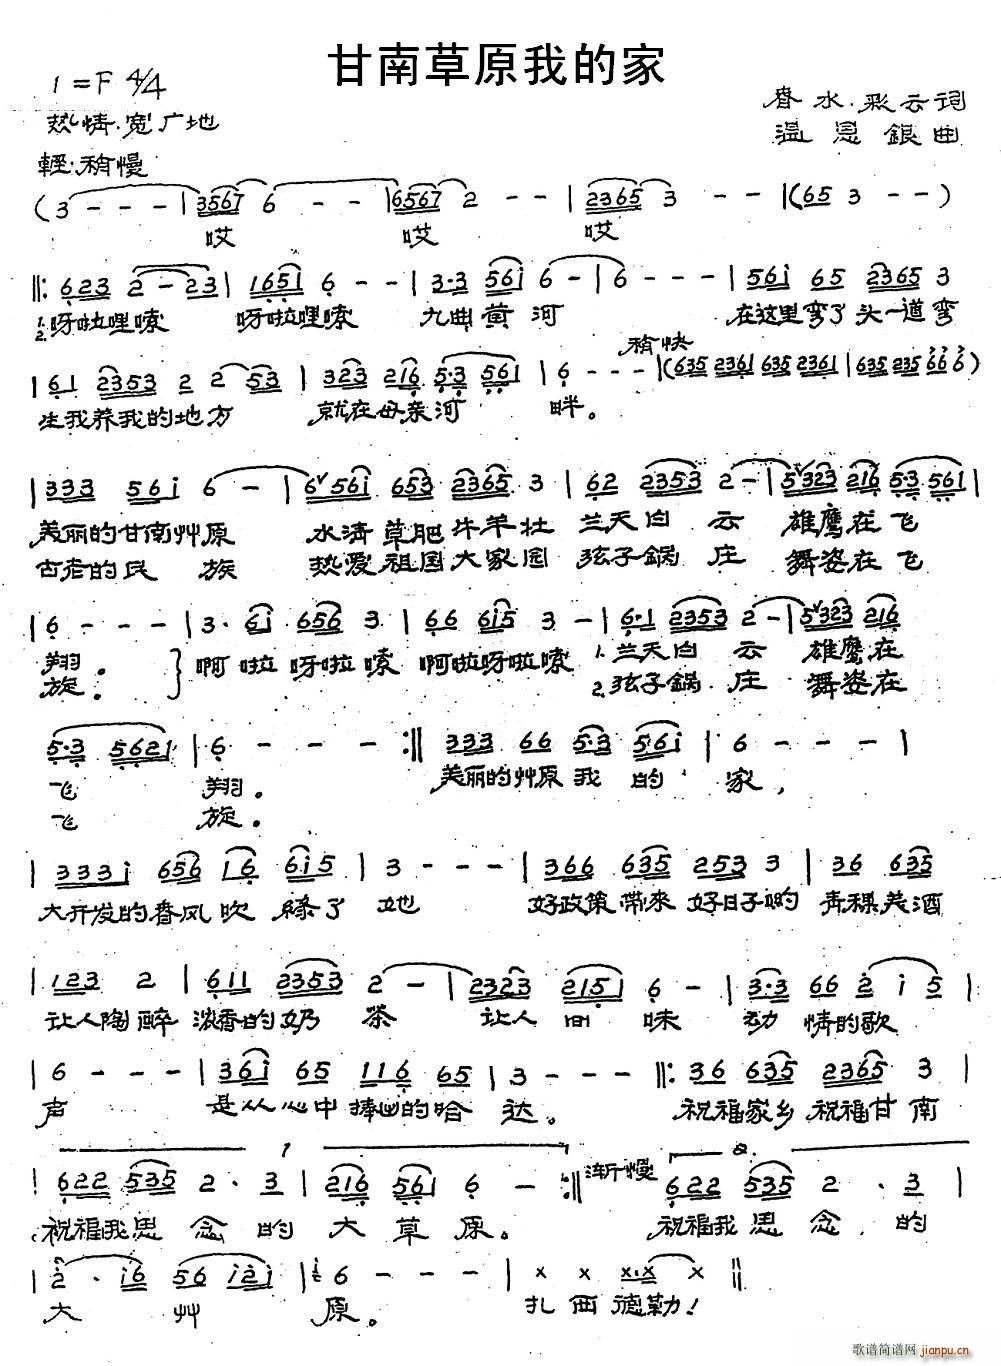 甘南草原我的家
1=F 4/4
春水·彩云词
热情·宽广地
温恩銀曲
輕·稍慢
(3 - - - | 3567 6 - - | 6567 2 - - | 2365 3 - - | (65 3 - - )
哎 哎 哎
‖: 623 2 - 23 | 165i 6 - - | 3·3 56i 6 - | 6 - - - | 56i 65 2365 3
1. 2. 呀啦哩嗦 呀啦哩嗦 九曲黄河 在这里弯了头一道弯
稍快
| 61 2353 2 2 53 | 323 216 5·3 561 | 6 - - - | (635 2361 635 2361 | 635 235 66 6)
生我养我的地方 就在母亲河畔。
| 333 56i 6 - | 6 56i 653 2365 3 | 62 2353 2 - | 5323 216 5·3 561 |
美丽的甘南艸原 水清草肥牛羊壮 兰天白云 雄鹰在飞
古老的民族 热爱祖国大家园 弦子锅庄 舞姿在飞
| 6 - - - | 3· 6i 656 3 | 66 6i5 3 - | 6·1 2353 2 - | 5323 216
翔。 啊啦呀啦嗦 啊啦呀啦嗦 1. 兰天白云 雄鹰在
旋。 2. 弦子锅庄 舞姿在
5·3 5621 | 6 - - - :‖ 333 66 5·3 56i | 6 - - - |
飞 翔。 美丽的艸原我的家,
飞 旋。
| 333i 656 16 6i5 | 3 - - - | 366 635 253 3 | 36 635
大开发的春风吹綠了她 好政策帶來好日子哟 青稞美酒
123 2 | 611 2353 2 - | 2323 215 6 - | 3·3 66 2 i 5 |
让人陶醉 浓香的奶茶 让人回味 动情的歌
| 6 - - - | 36i 65 116 65 | 3 - - - ‖: 36 635 2365 3 |
声 是从心中捧出的哈达。 祝福家乡祝福甘南
1 渐慢 2
| 622 535 2· 3 | 216 561 6 - :‖ 622 535 2· 3 |
祝福我思念的大草原。 祝福我思念的
| 2· i6 56 i2i | 6 - - - | x x x·x x ‖
大艸原。 扎西德勒!
歌谱简谱网 jianpu.cn